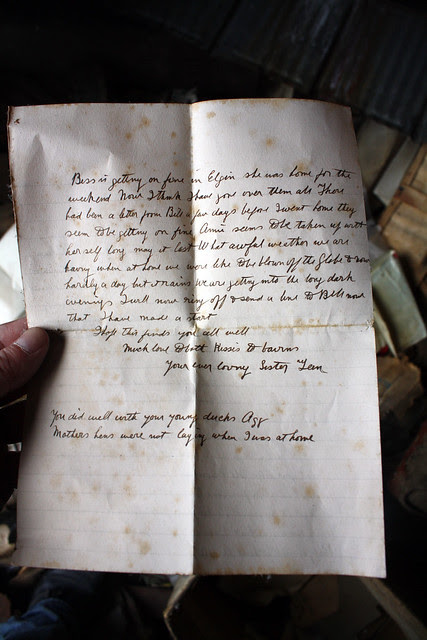 Bess is getting on fine in Elgin she was home for the
weekend Now I think I have gone over them all There
had been a letter from Bill a few days before I went home they
seem to be getting on fine Amie seems to be taken up with
herself long may it last What awful weather we are
having when at home we were like to be blown off the Globe & now
hardly a day but it rains we are getting into the long dark
evenings I will now ring off & send a line to Bell now
that I have made a start
I hope this finds you all well
Much love to both Kisses to bairns
Your ever loving Sister
You did well with your young ducks Agg
Mothers hens were not laying when I was at home